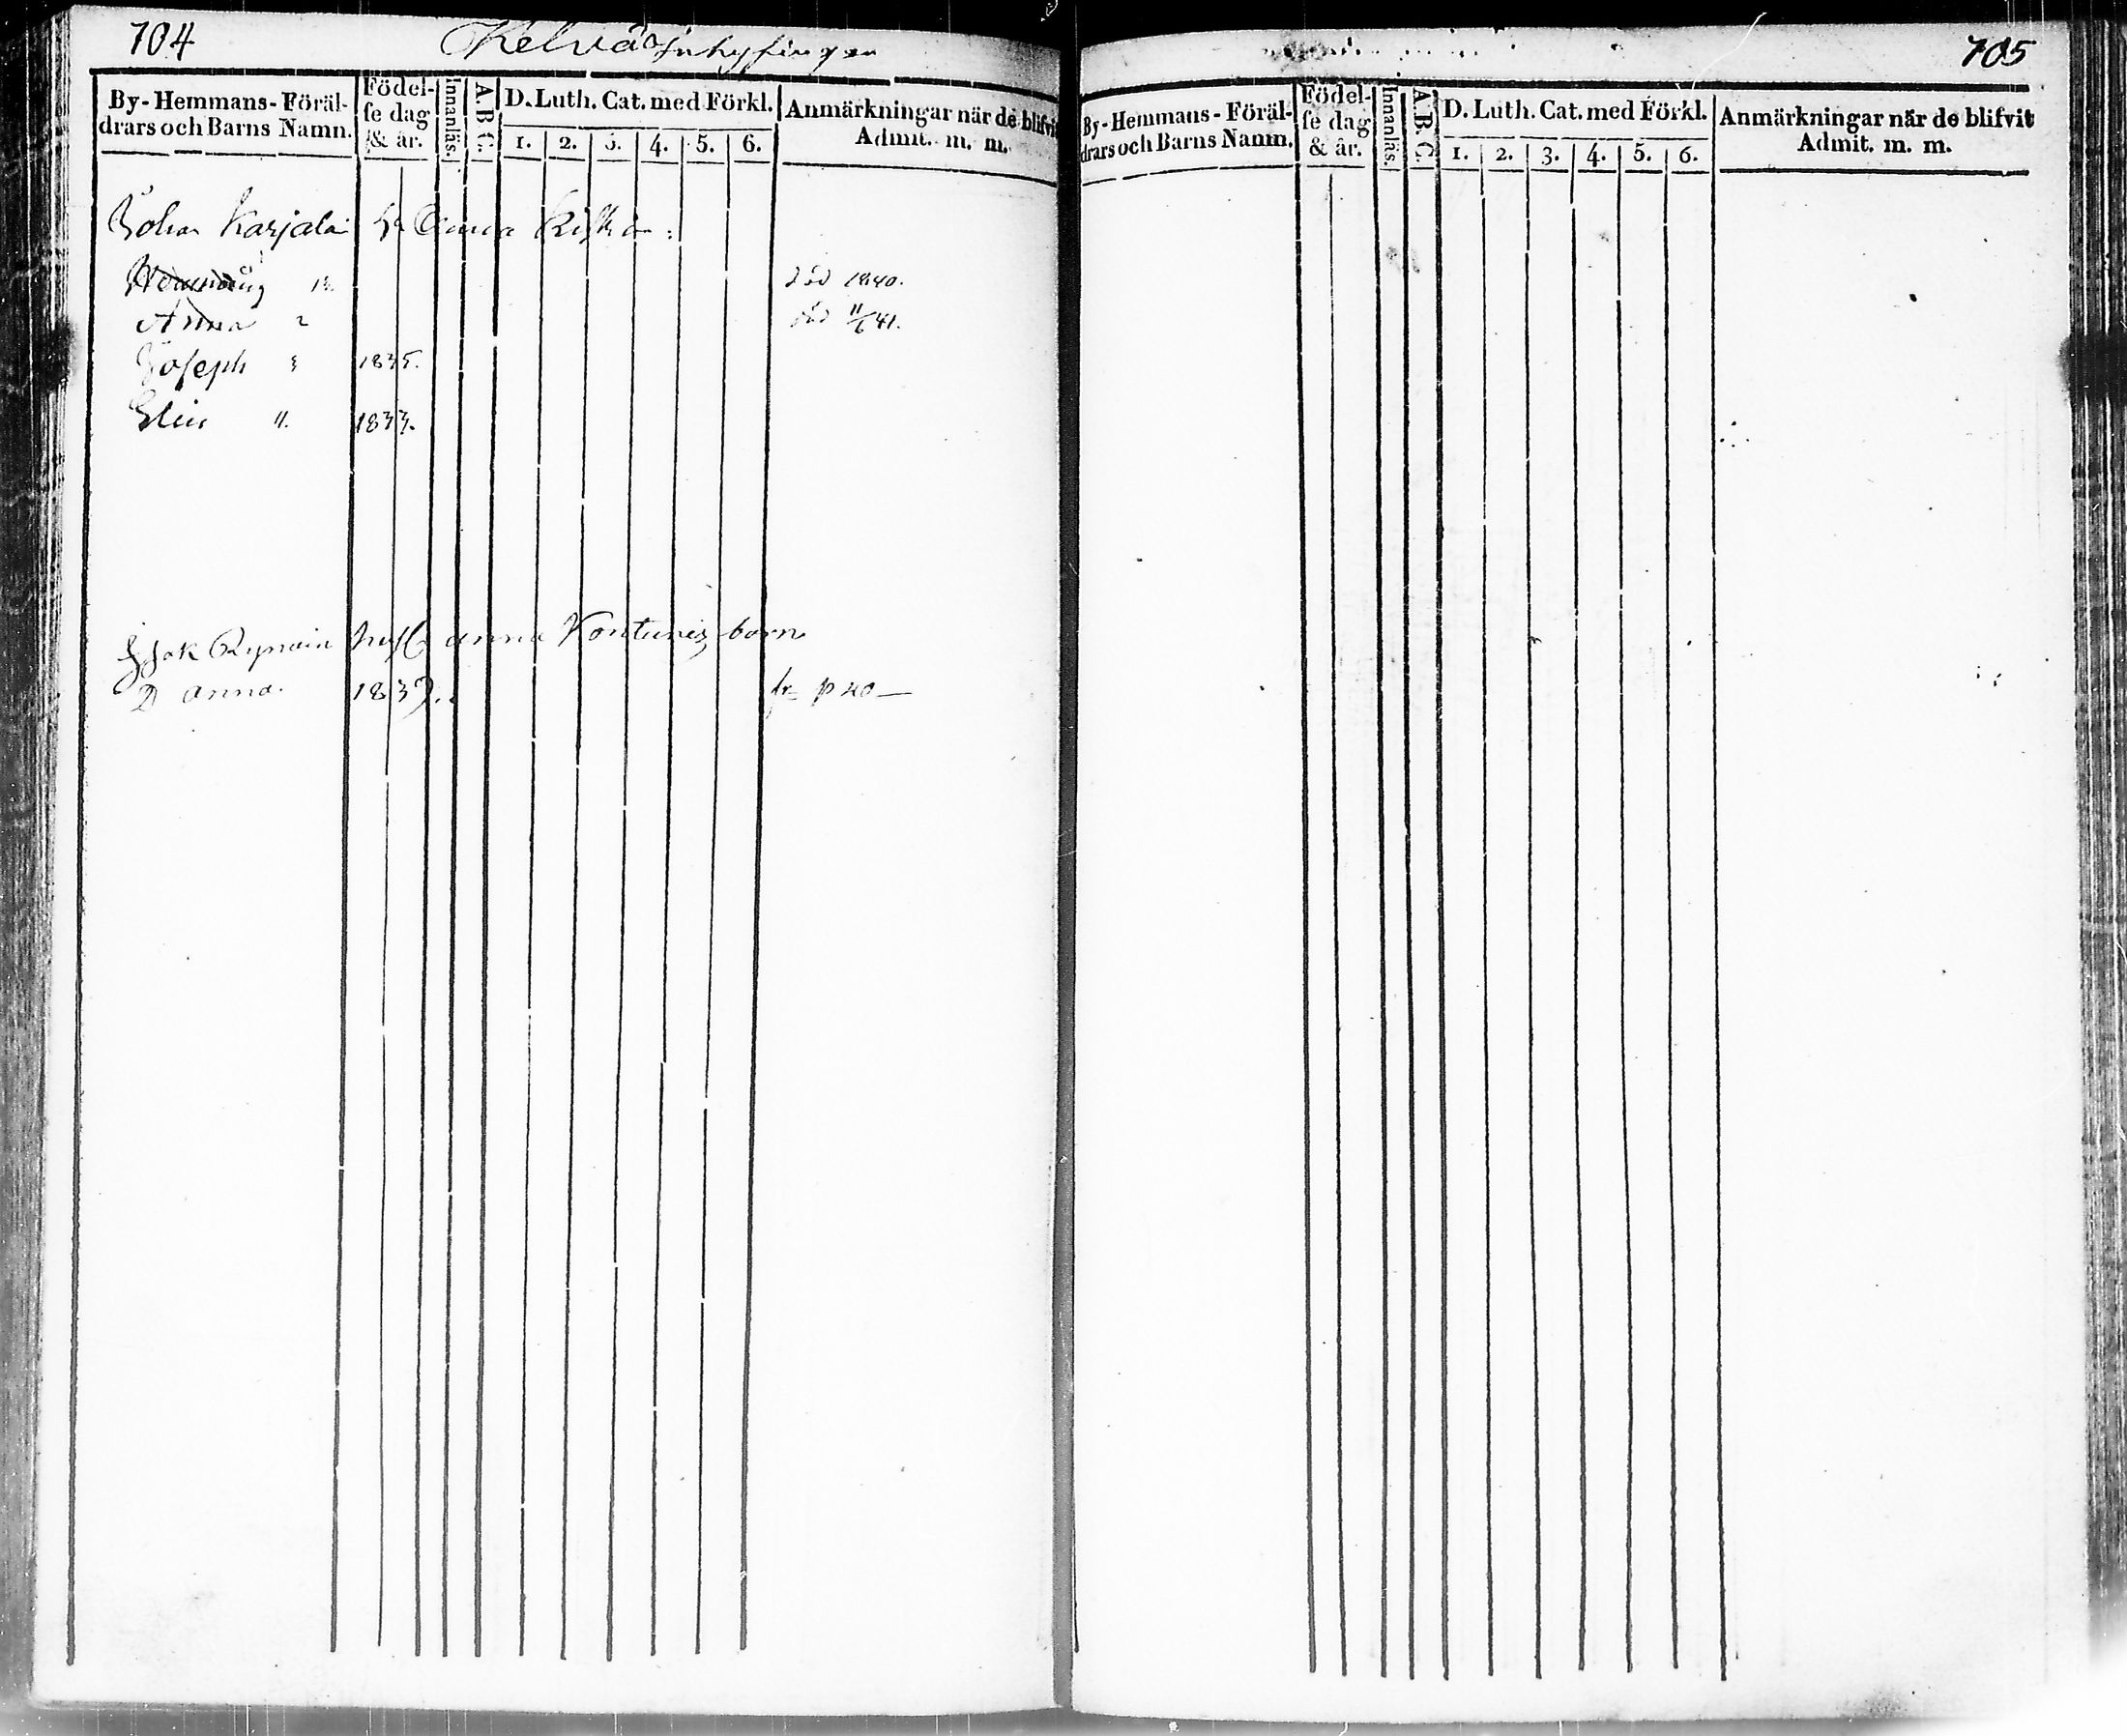 704
Kelvä Inhysingar
By-Hemmans-Föräl-
drars och Barns Namn.
Födel-
se dag
& år.
Innanläs.
A.B.C.
D. Luth. Cat. med Förkl.
1. 2. 3. 4. 5. 6.
Anmärkningar när de blifvit
Admit. m. m.
Johan Karjalai Anna
död 1840.
Anna död 11/6 41.
Joseph 1835.
Elin 1833.
Anna Kontunes barn
D anna. 1837. p 40
705
By-Hemmans-Föräl-
drars och Barns Namn.
Födel-
se dag
& år.
Innanläs.
A.B.C.
D. Luth. Cat. med Förkl.
1. 2. 3. 4. 5. 6.
Anmärkningar när de blifvit
Admit. m. m.